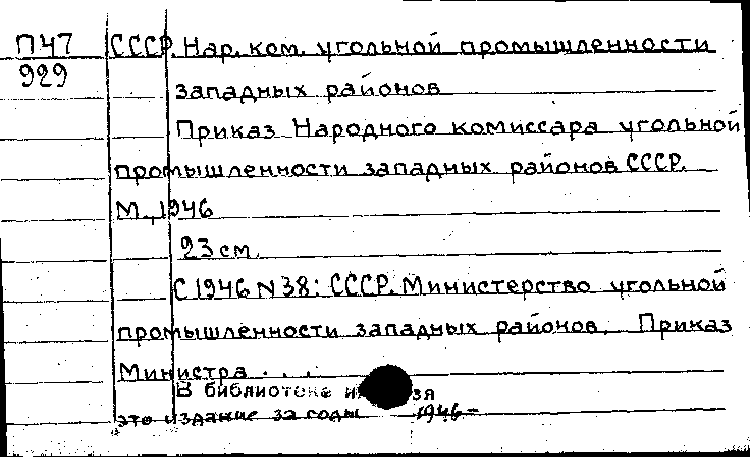 П47 СССР. Нар. ком. угольной промышленности
929
западных районов
Приказ Народного комиссара угольной
промышленности западных районов СССР.
М., 1946
23 см.
С 1946 N 38: СССР. Министерство угольной
промышленности западных районов. Приказ
Министра . . .
В библиотеке
это издание за годы 1946-